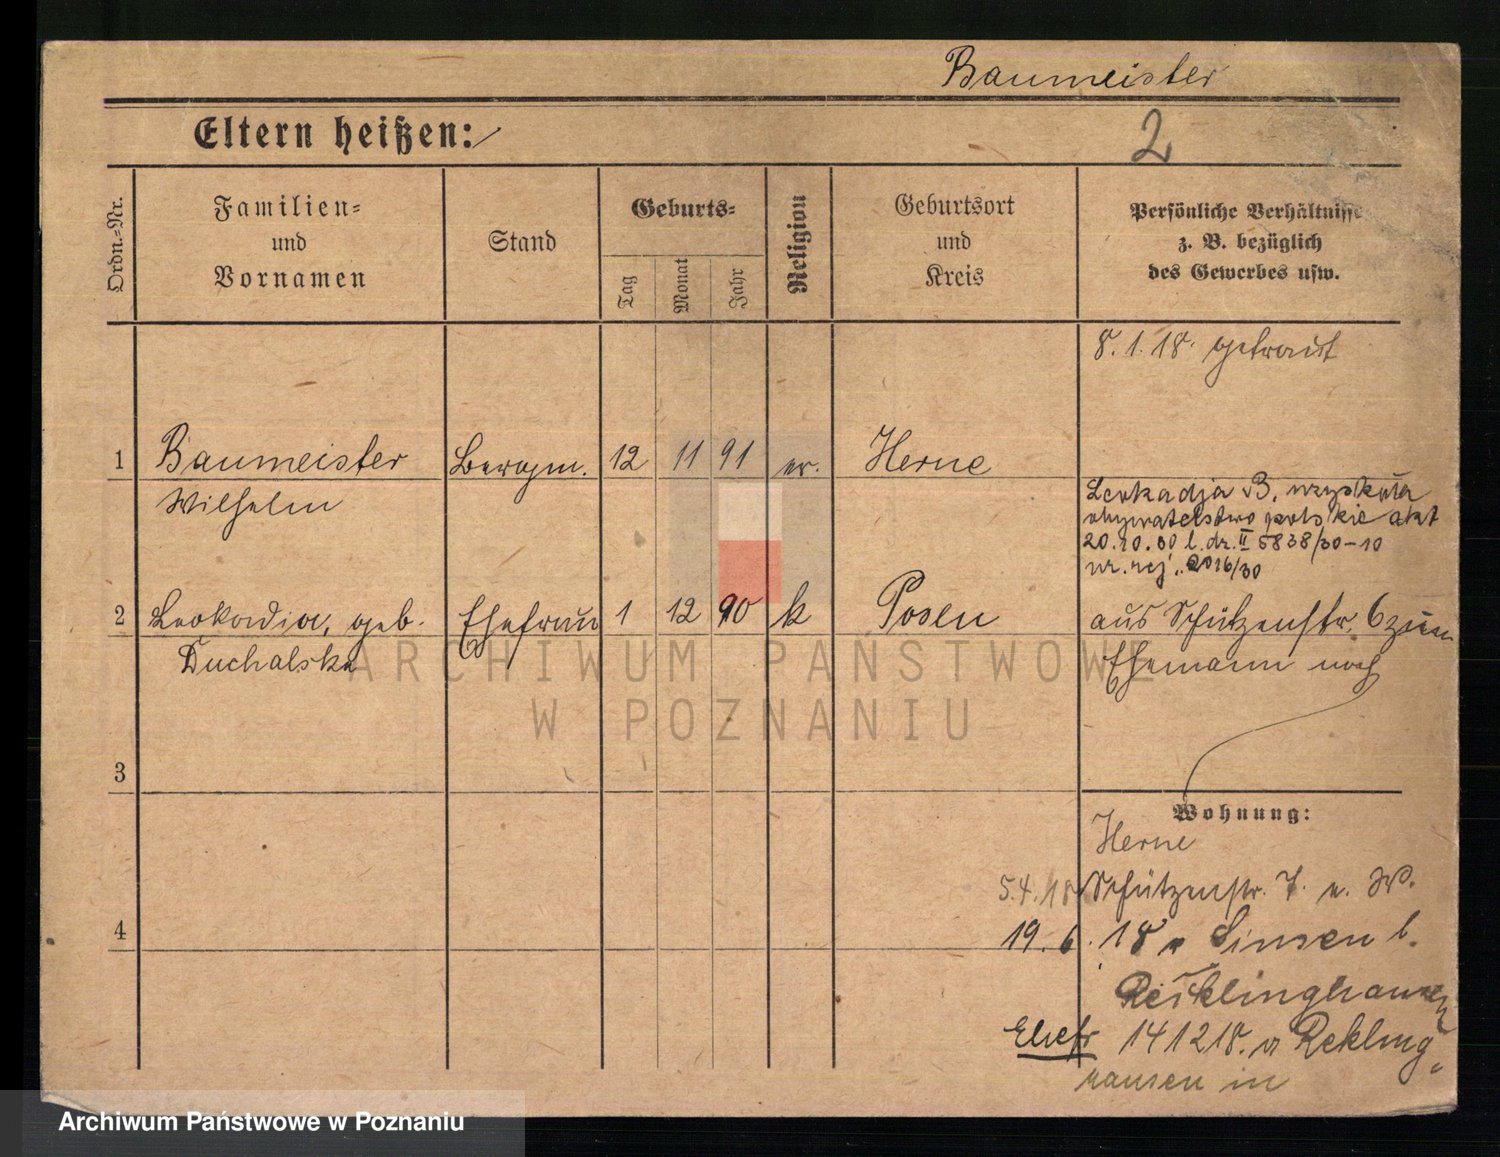 Baumeister
Eltern heißen:
2
Ordn.-Nr.
Familien-
und
Vornamen
Stand
Geburts-
Tag
Monat
Jahr
Religion
Geburtsort
und
Kreis
Persönliche Verhältnisse
z. B. bezüglich
des Gewerbes usw.
8.1.18. getraut
1 Baumeister Bergm. 12 11 91 ev. Herne
Wilhelm
Leokadja B. uzyskała
obywatelstwo polskie akt
20.10.30 l. dz. II 5838/30-10
nr. rej. 2016/30
2 Leokadia, geb. Ehefrau 1 12 90 k Posen
Duchalska
aus Schützenstr. 6 zum
Ehemann nach
3
Wohnung:
Herne
5.4.18 Schützenstr. 7. u. W.
4
19.6.18 n Sinsen b.
Recklinghausen
Ehefr 14 12 18. v Rekling-
hausen in
ARCHIWUM PAŃSTWOWE
W POZNANIU
Archiwum Państwowe w Poznaniu